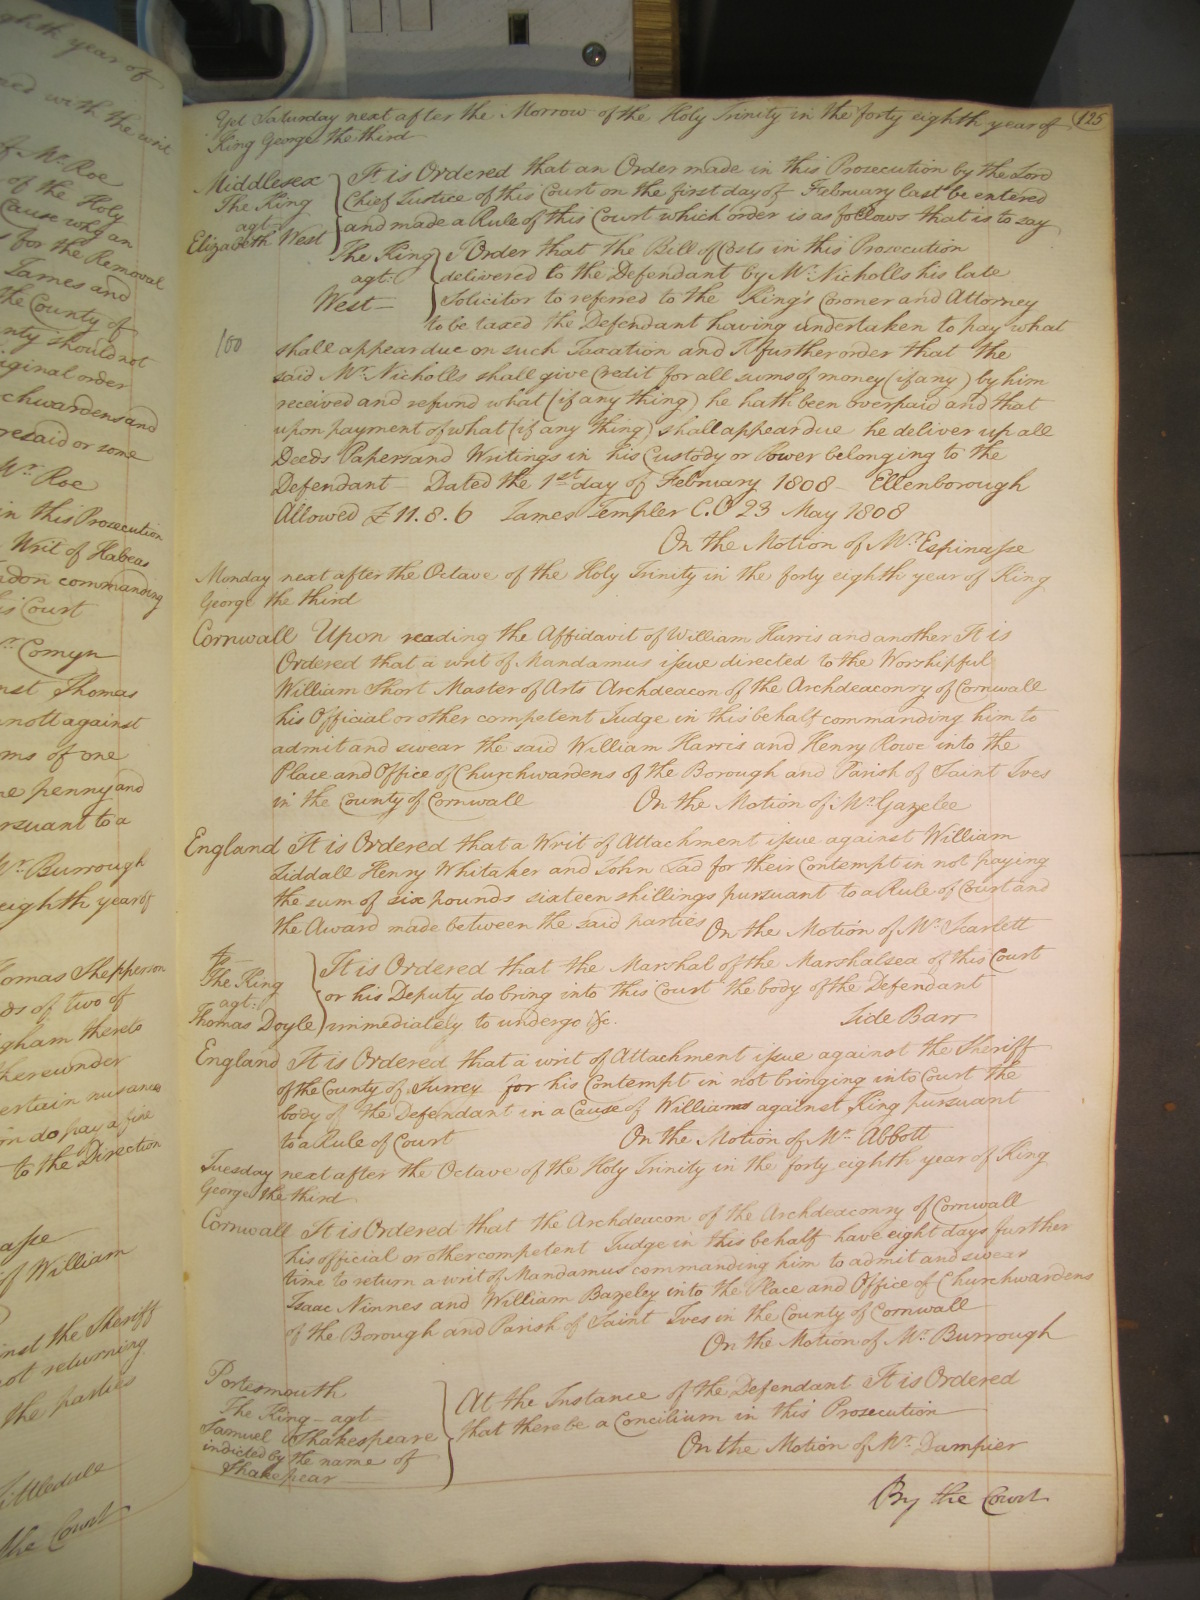 ghth year of
ned with the writ
of Mr. Roe
of the Holy
Cause why an
s for the Removal
James and
the County of
nty should not
iginal order
chwardens and
resaid or some
Mr. Roe
in this Prosecution
Writ of Habeas
ndon commanding
is Court
Mr. Comyn
nst Thomas
nott against
ms of one
ne penny and
rsuant to a
Mr. Burrough
eighth year of
homas Shepperson
ds of two of
gham thereto
hereunder
ertain nusance
on do pay a fine
to the Direction
asse
of William
inst the Sheriff
not returning
the parties
ittledale
the Court
125
Yet Saturday next after the Morrow of the Holy Trinity in the forty eighth year of
King George the third
Middlesex
The King
agt.
Elizabeth West
It is Ordered that an Order made in this Prosecution by the Lord
Chief Justice of this Court on the first day of February last be entered
and made a Rule of this Court which order is as follows that is to say
The King
agt.
West
I Order that the Bill of Costs in this Prosecution
delivered to the Defendant by Mr. Nicholls his late
Solicitor to referred to the King's Coroner and Attorney
to be taxed the Defendant having undertaken to pay what
100
shall appear due on such Taxation and I further order that the
said Mr. Nicholls shall give Credit for all sums of money (if any) by him
received and refund what (if any thing) he hath been overpaid and that
upon payment of what (if any thing) shall appear due he deliver up all
Deeds Papers and Writings in his Custody or Power belonging to the
Defendant – Dated the 1st day of February 1808 – Ellenborough
Allowed £11.8.6 James Templer C.O 23 May 1808
On the Motion of Mr. Espinasse
Monday next after the Octave of the Holy Trinity in the forty eighth year of King
George the third
Cornwall Upon reading the Affidavit of William Harris and another It is
Ordered that a writ of Mandamus issue directed to the Worshipful
William Short Master of Arts Archdeacon of the Archdeaconry of Cornwall
his Official or other competent Judge in this behalf commanding him to
admit and swear the said William Harris and Henry Rowe into the
Place and Office of Churchwardens of the Borough and Parish of Saint Ives
in the County of Cornwall On the Motion of Mr. Gazelee
England It is Ordered that a Writ of Attachment issue against William
Siddall Henry Whitaker and John Lad for their Contempt in not paying
the sum of six pounds sixteen shillings pursuant to a Rule of Court and
the Award made between the said parties On the Motion of Mr. Scarlett
The King
agt.
Thomas Doyle
It is Ordered that the Marshal of the Marshalsea of this Court
or his Deputy do bring into this Court the body of the Defendant
immediately to undergo &c. Side Barr
England It is Ordered that a writ of Attachment issue against the Sheriff
of the County of Surrey for his Contempt in not bringing into Court the
body of the Defendant in a Cause of Williams against King pursuant
to a Rule of Court On the Motion of Mr. Abbott
Tuesday next after the Octave of the Holy Trinity in the forty eighth year of King
George the third
Cornwall It is Ordered that the Archdeacon of the Archdeaconry of Cornwall
his official or other competent Judge in this behalf have eight days further
time to return a writ of Mandamus commanding him to admit and swear
Isaac Ninnes and William Bazeley into the Place and Office of Churchwardens
of the Borough and Parish of Saint Ives in the County of Cornwall
On the Motion of Mr. Burrough
Portesmouth
The King – agt
Samuel Shakespeare
indicted by the name of
Shakepear
At the Instance of the Defendant It is Ordered
that there be a Concilium in this Prosecution
On the Motion of Mr. Dampier
By the Court